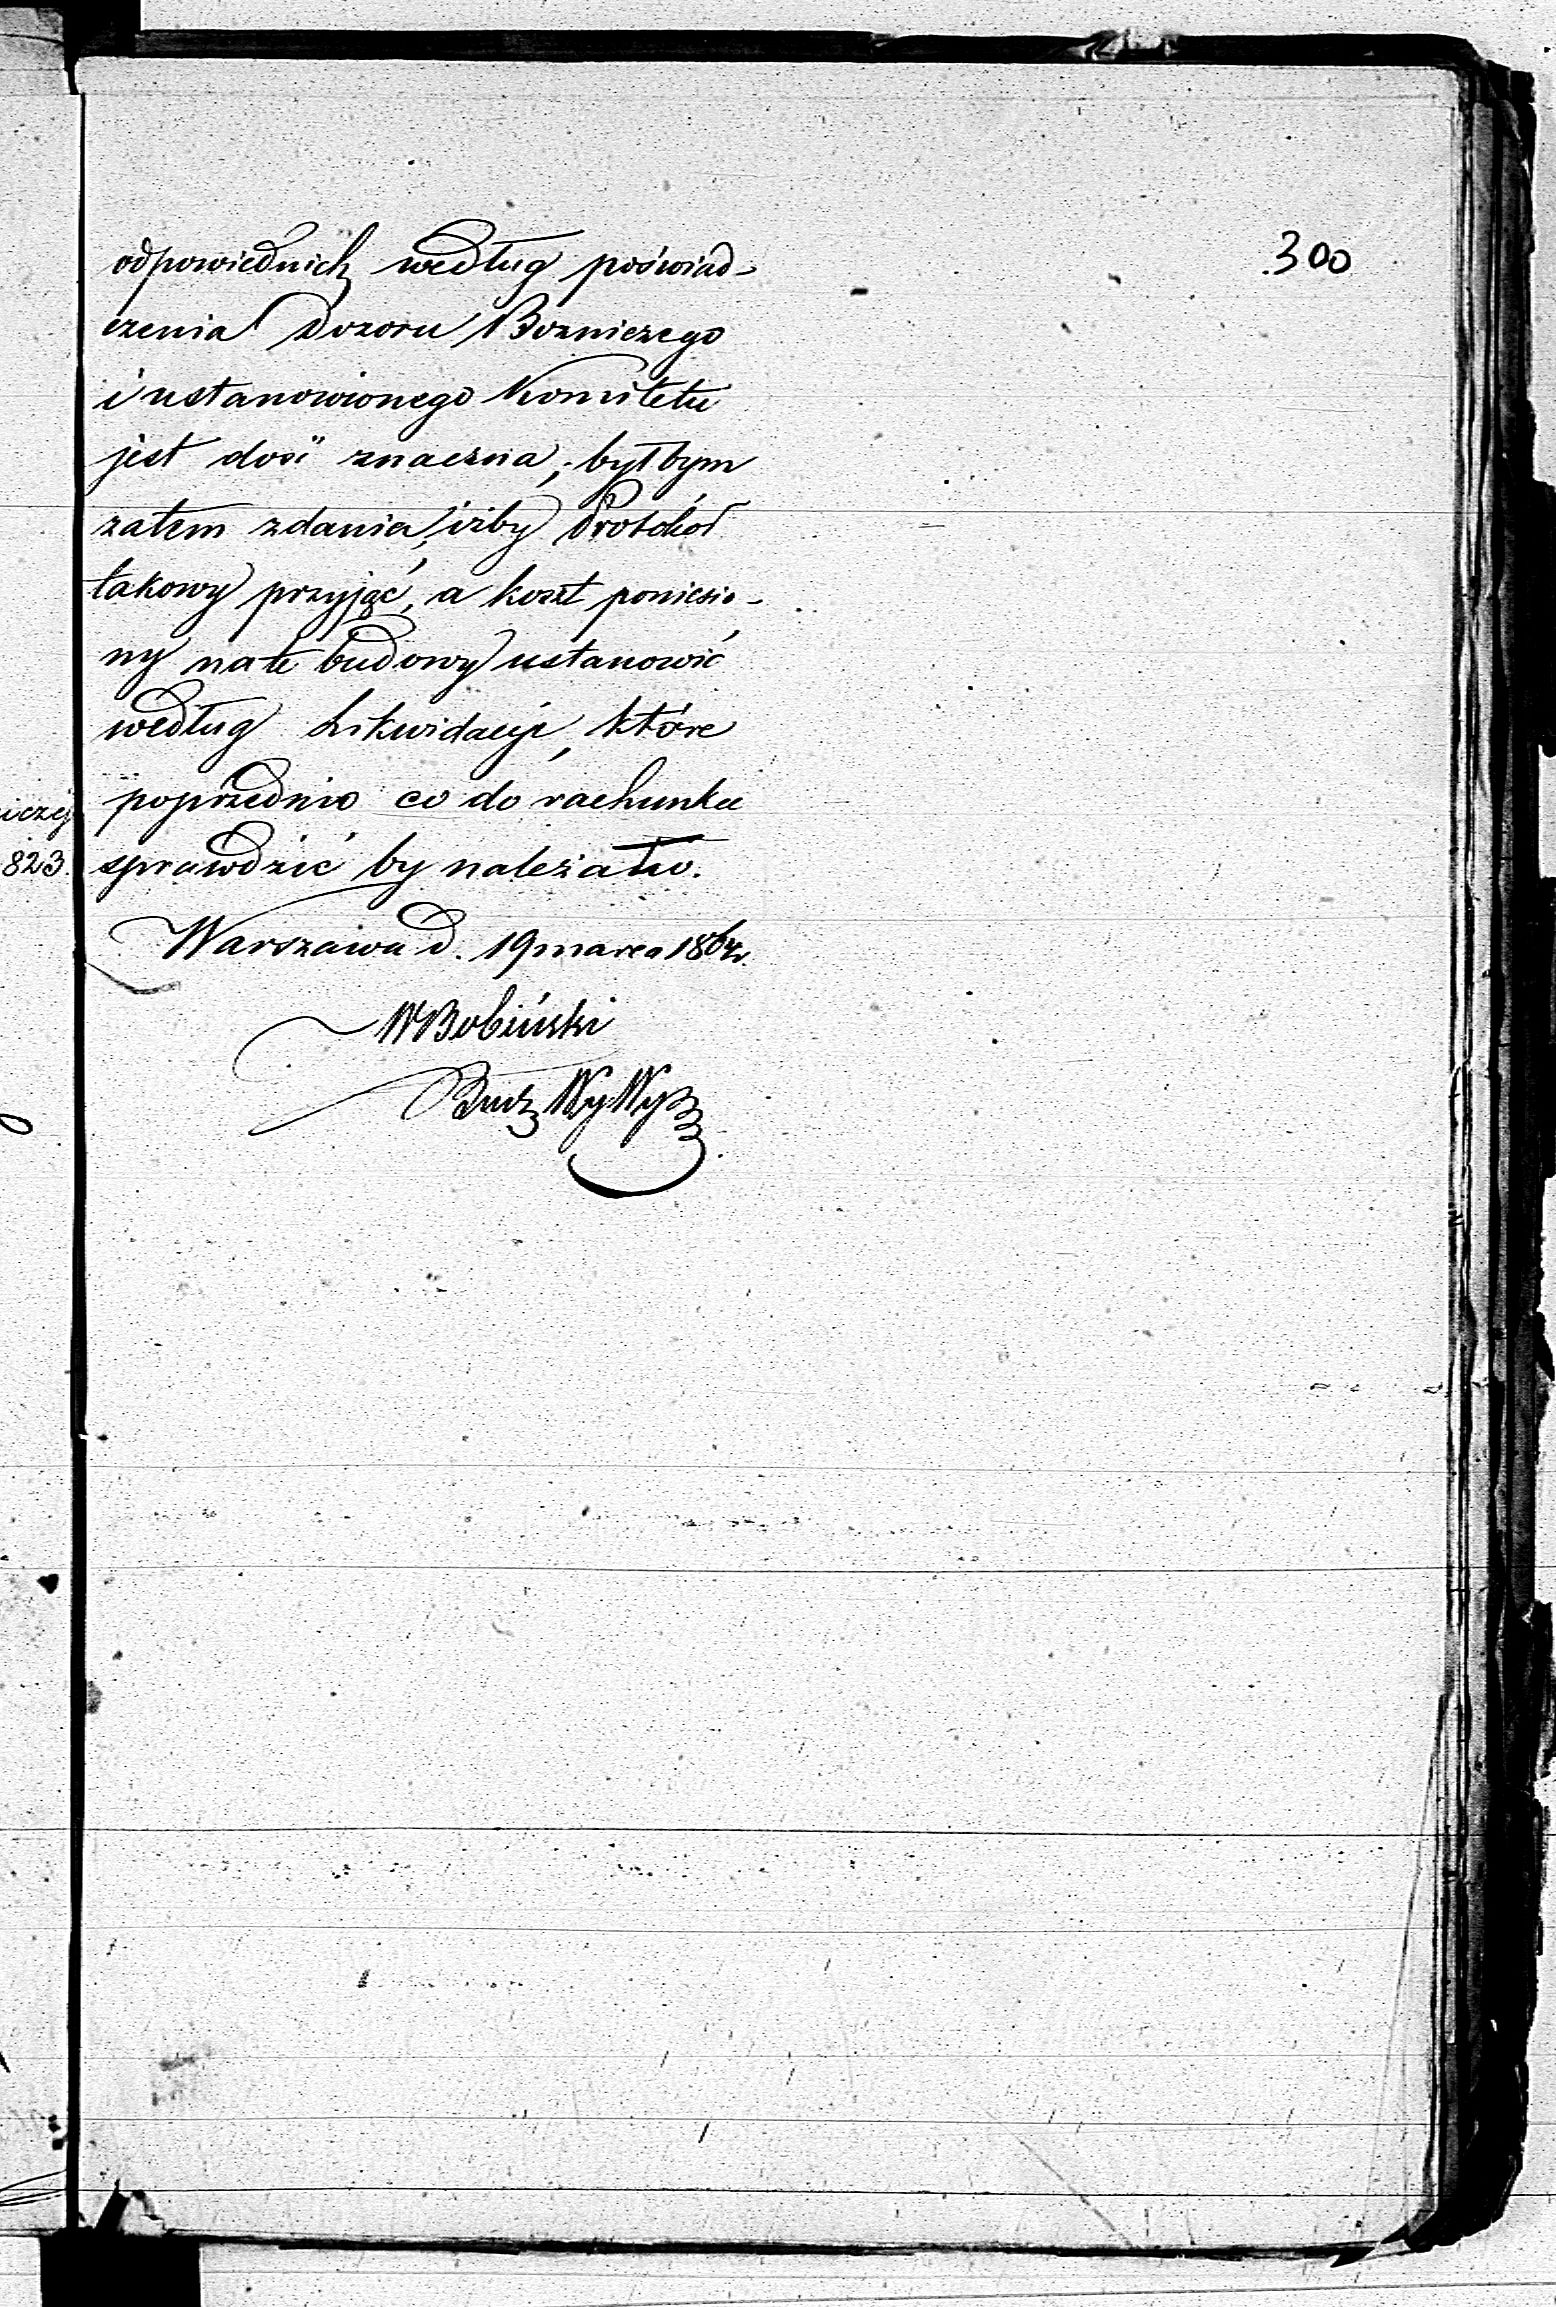 300
odpowiednich według poświad-
czenia Dozoru Bozniczego
i ustanowionego Komitetu
jest dość znaczna; byłbym
zatem zdania, iżby Protokół
takowy przyjąć, a koszt poniesio-
ny na te budowy ustanowić
według Likwidacyi, które
poprzednio co do rachunku
sprawdzić by należało.
Warszawa d. 19 marca 1864 r.
W Bobiński
Bud: Wy Wy
iczej
823.